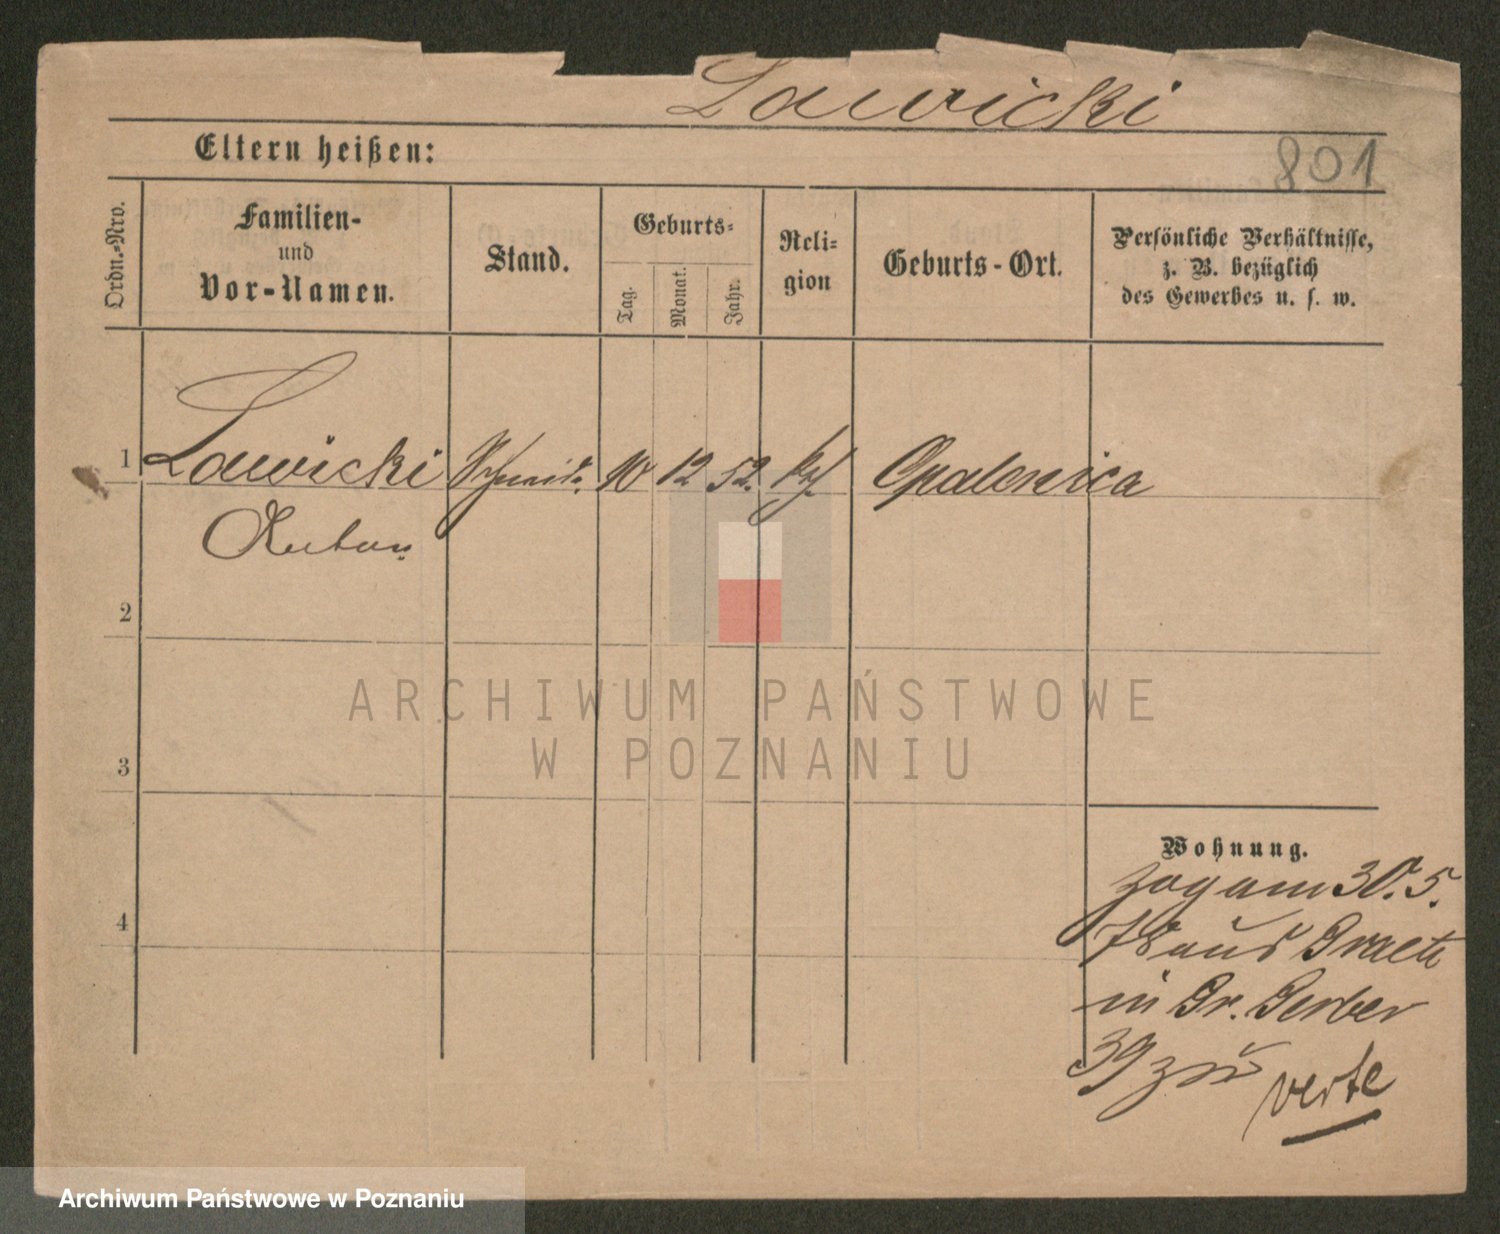 Lawicki
801
Eltern heißen:
Ordn.-Nro.
Familien-
und
Vor-Namen.
Stand.
Geburts-
Tag.
Monat.
Jahr.
Reli-
gion
Geburts-Ort.
Persönliche Verhältnisse,
z. B. bezüglich
des Gewerbes u. s. w.
1 Lawicki Schmied. 10 12 52. kth. Opalenica
Anton
2
3
4
ARCHIWUM PAŃSTWOWE
W POZNANIU
Wohnung.
zog am 30. 5.
78 aus
in Gr. Gerber
39 zu
verte
Archiwum Państwowe w Poznaniu